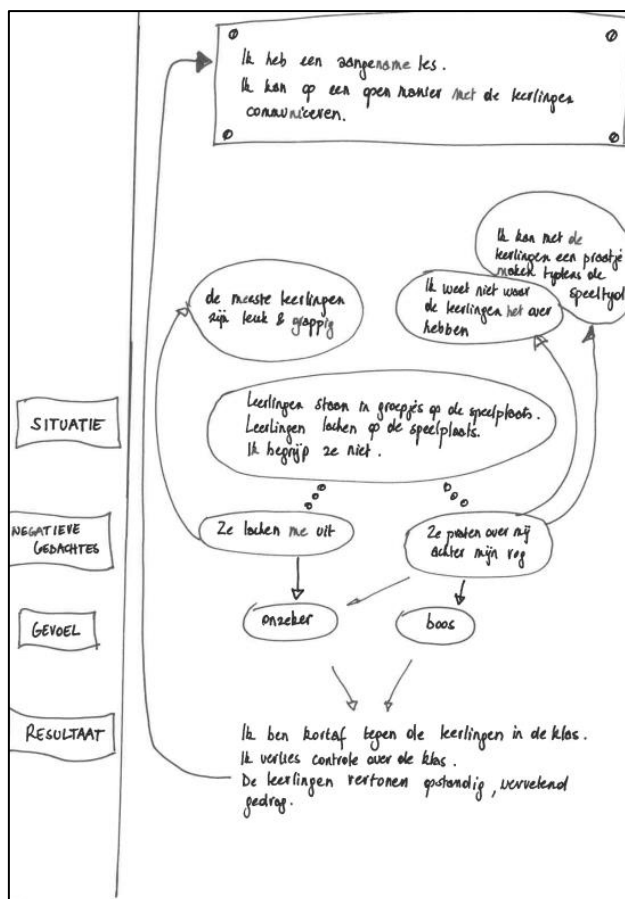 Ik heb een aangename les.
Ik kan op een open manier met de leerlingen
communiceren.
Ik kan met de
leerlingen een praatje
maken tijdens de
speeltijd
de meeste leerlingen
zijn leuk & grappig
Ik weet niet waar
de leerlingen het over
hebben
SITUATIE
Leerlingen staan in groepjes op de speelplaats.
Leerlingen lachen op de speelplaats.
Ik begrijp ze niet.
NEGATIEVE
GEDACHTES
Ze lachen me uit
Ze praten over mij
achter mijn rug
GEVOEL
onzeker
boos
RESULTAAT
Ik ben kortaf tegen de leerlingen in de klas.
Ik verlies controle over de klas.
De leerlingen vertonen opstandig, vervelend
gedrag.